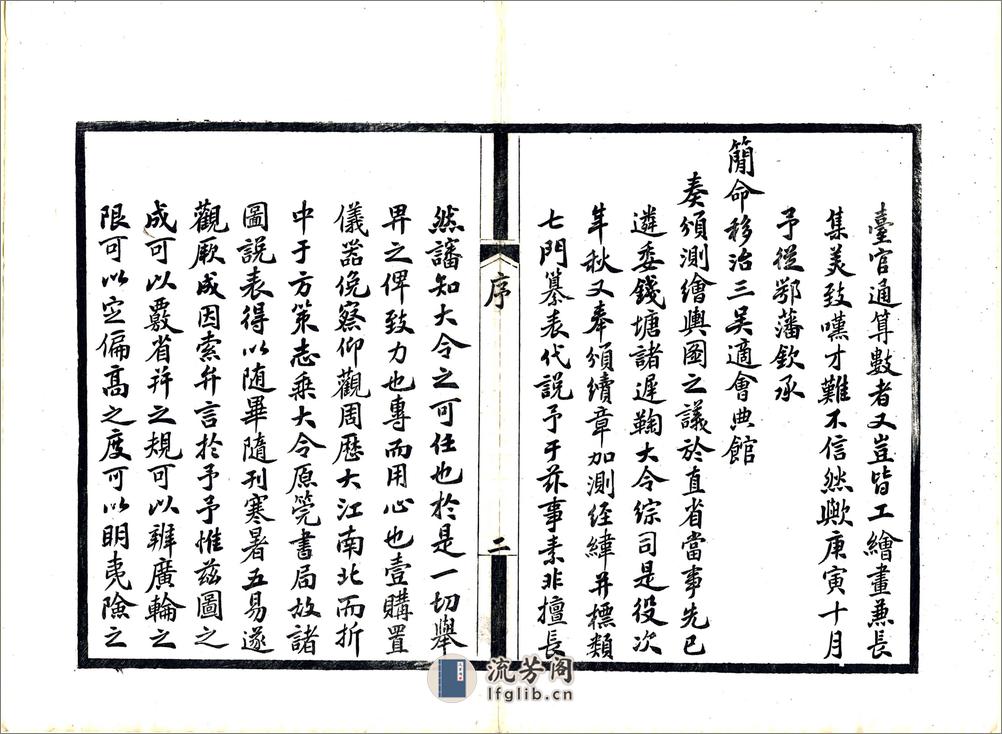 臺官通算數者又豈皆工繪畫兼長
集美致嘆才難不信然歟庚寅十月
予從鄂藩欽承
簡命移治三吳適會典館
奏頒測繪輿圖之議於直省當事先已
遴委錢塘諸遲鞠大令綜司是役次
年秋又奉頒續章加測經緯并標類
七門纂表代說予于茲事素非擅長
序
二
然審知大令之可任也於是一切舉
畀之俾致力也專而用心也壹購置
儀器俛察仰觀周歷大江南北而折
中于方策志乘大令原筦書局故諸
圖說表得以随畢隨刊寒暑五易遂
觀厥成因索弁言於予予惟兹圖之
成可以覈省并之規可以辨廣輪之
限可以定偏高之度可以明夷險之
流芳阁
lfglib.cn